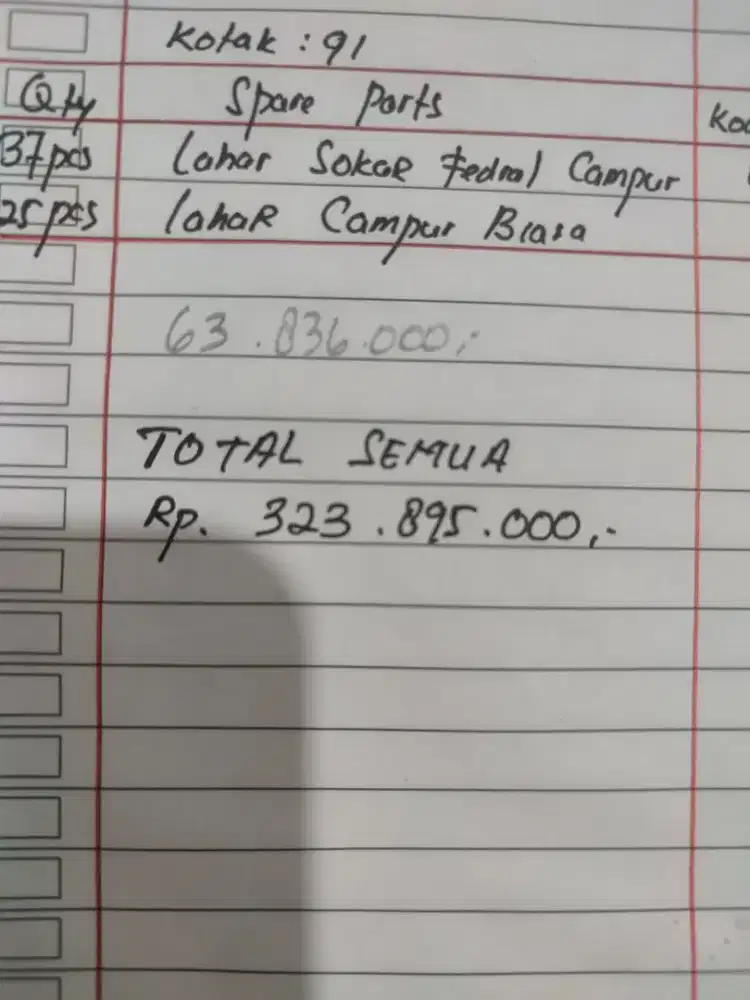 Kotak : 91
Qty Spare Parts
37 pcs Lahar Sokar Fedral Campur
25 pcs lahaR Campur Biasa
63.836.000,-
TOTAL SEMUA
Rp. 323.895.000,-